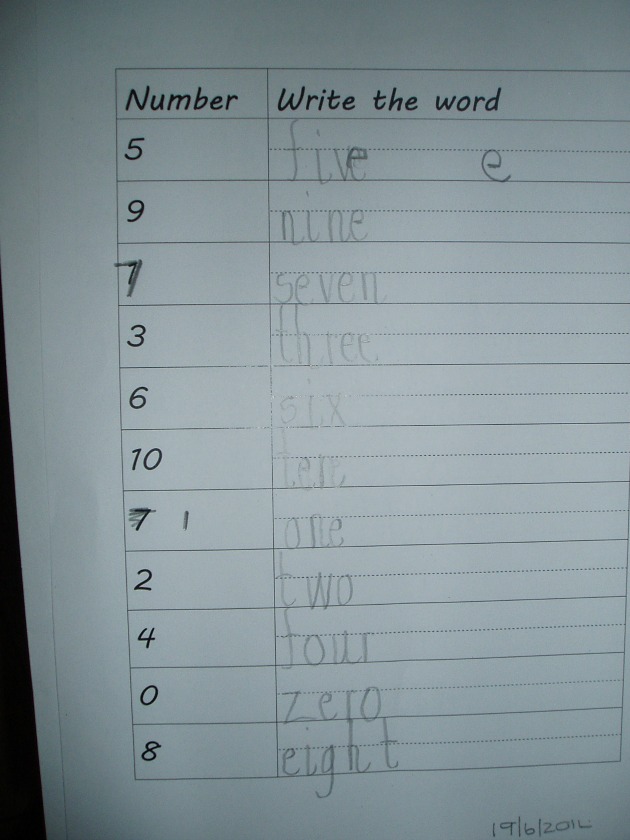 Number Write the word
5 five e
9 nine
7 seven
3 three
6 six
10 ten
7 1 one
2 two
4 four
0 zero
8 eight